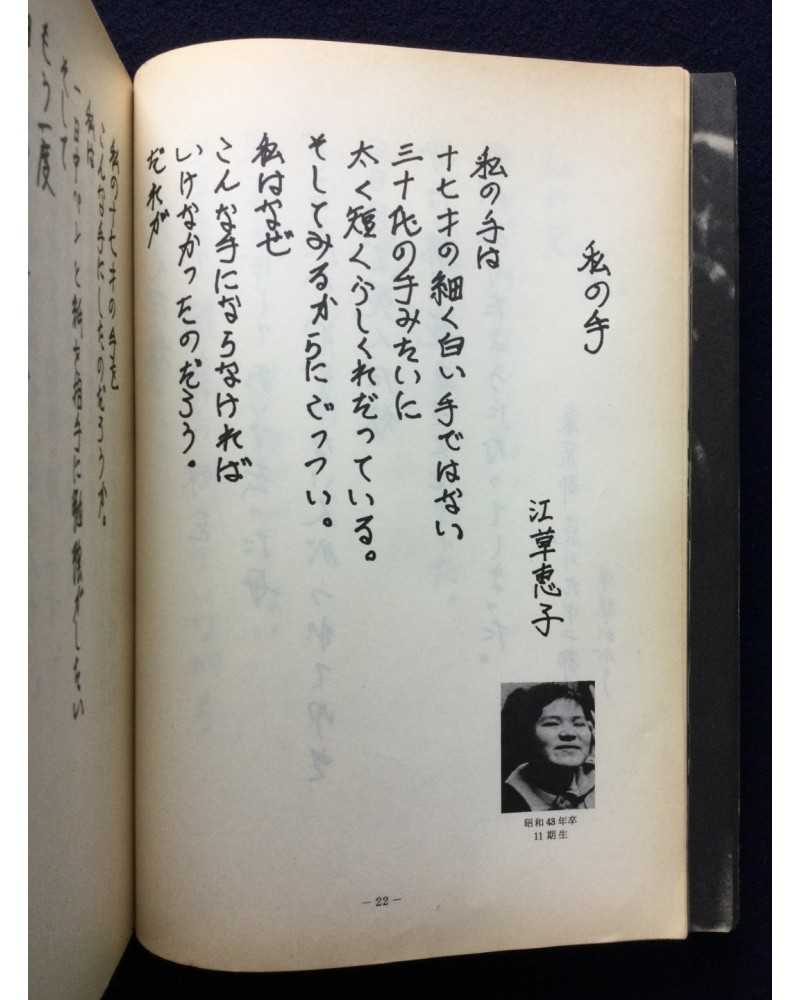 私の手
江草恵子
昭和43年卒
11期生
私の手は
十七才の細く白い手ではない
三十代の手みたいに
太く短くふしくれだっている。
そしてみるからにごっつい。
私はなぜ
こんな手にならなければ
いけなかったのだろう。
だれが
－22－
私の十七才の手を
こんな手にしたのだろうか。
私は
一日中ペンと紙を相手に勉強がしたい
そして
もう一度